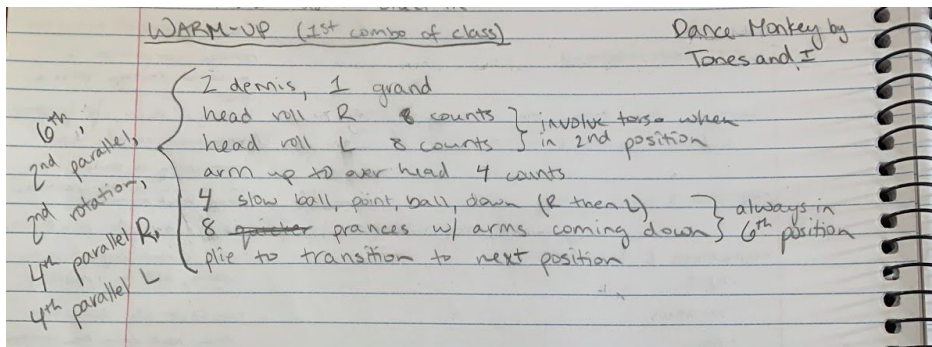 WARM-UP (1st combo of class)
Dance Monkey by
Tones and I
6th,
2nd parallel,
2nd rotation,
4th parallel R,
4th parallel L
2 demis, 1 grand
head roll R 8 counts
head roll L 8 counts
involve torso when
in 2nd position
arm up to over head 4 counts
4 slow ball, point, ball, down (R then L)
8 quicker prances w/ arms coming down
always in
6th position
plie to transition to next position